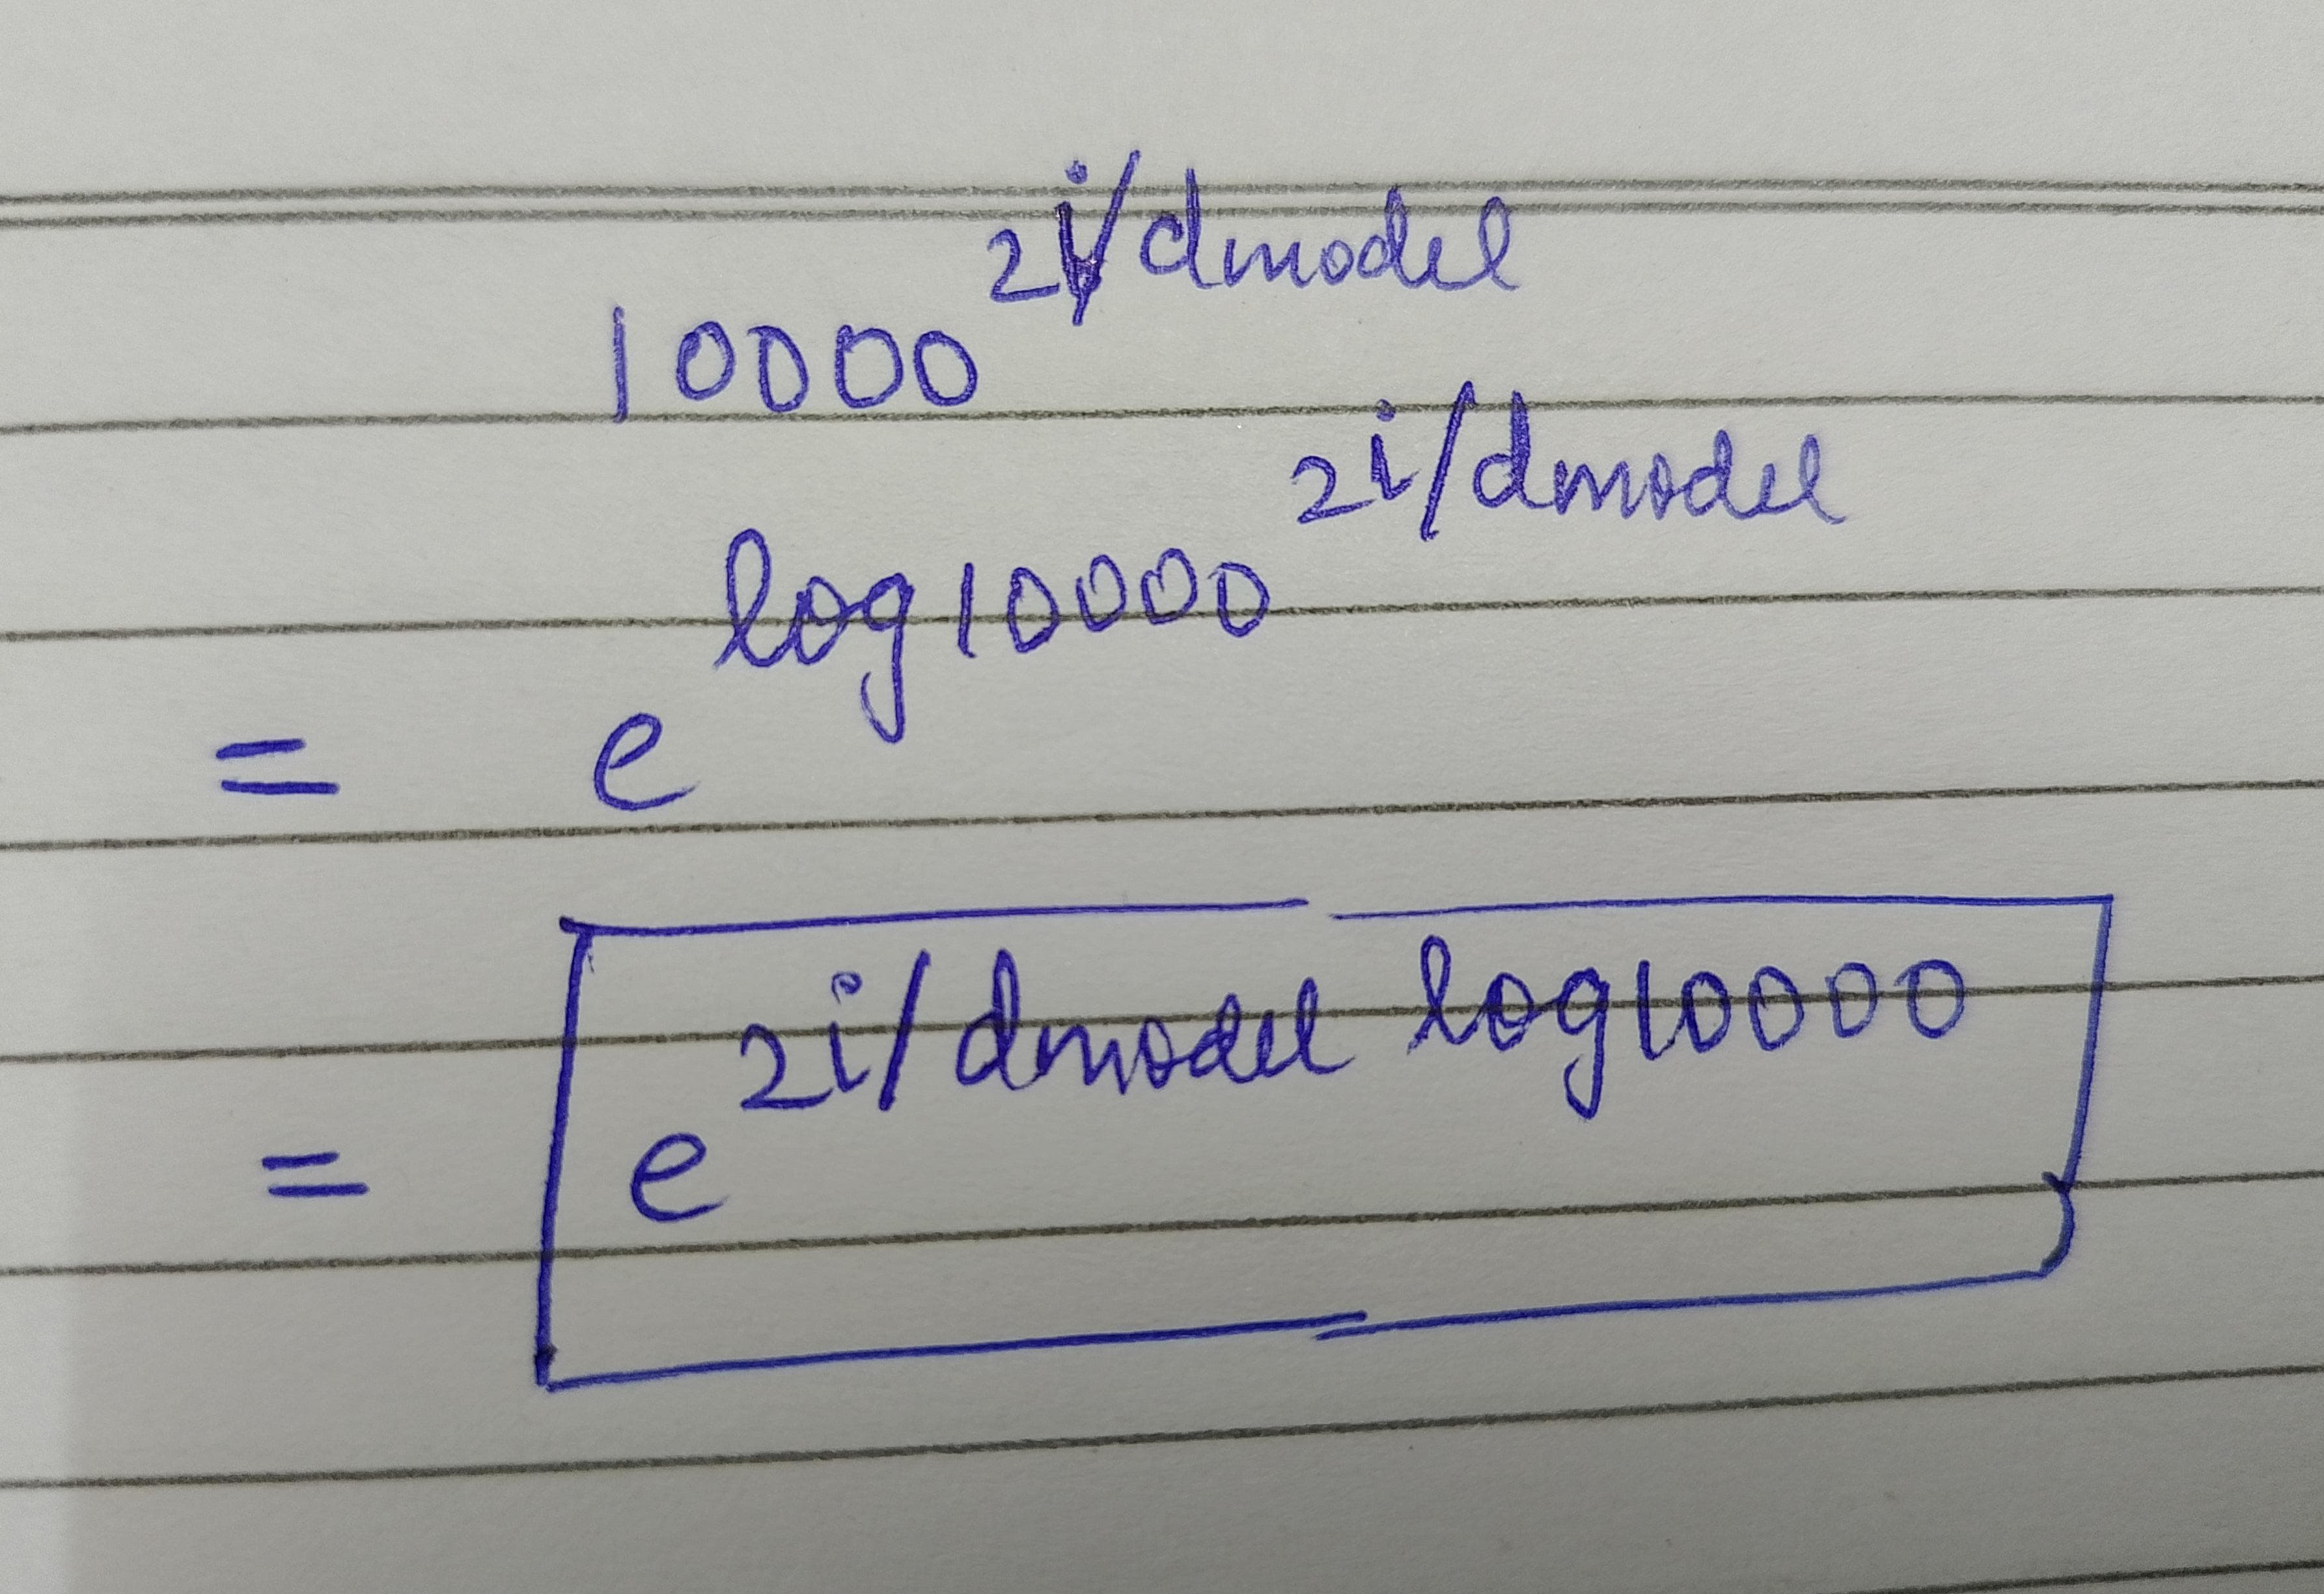 10000^2i/dmodel
= e^log10000^2i/dmodel
= e^2i/dmodel log10000